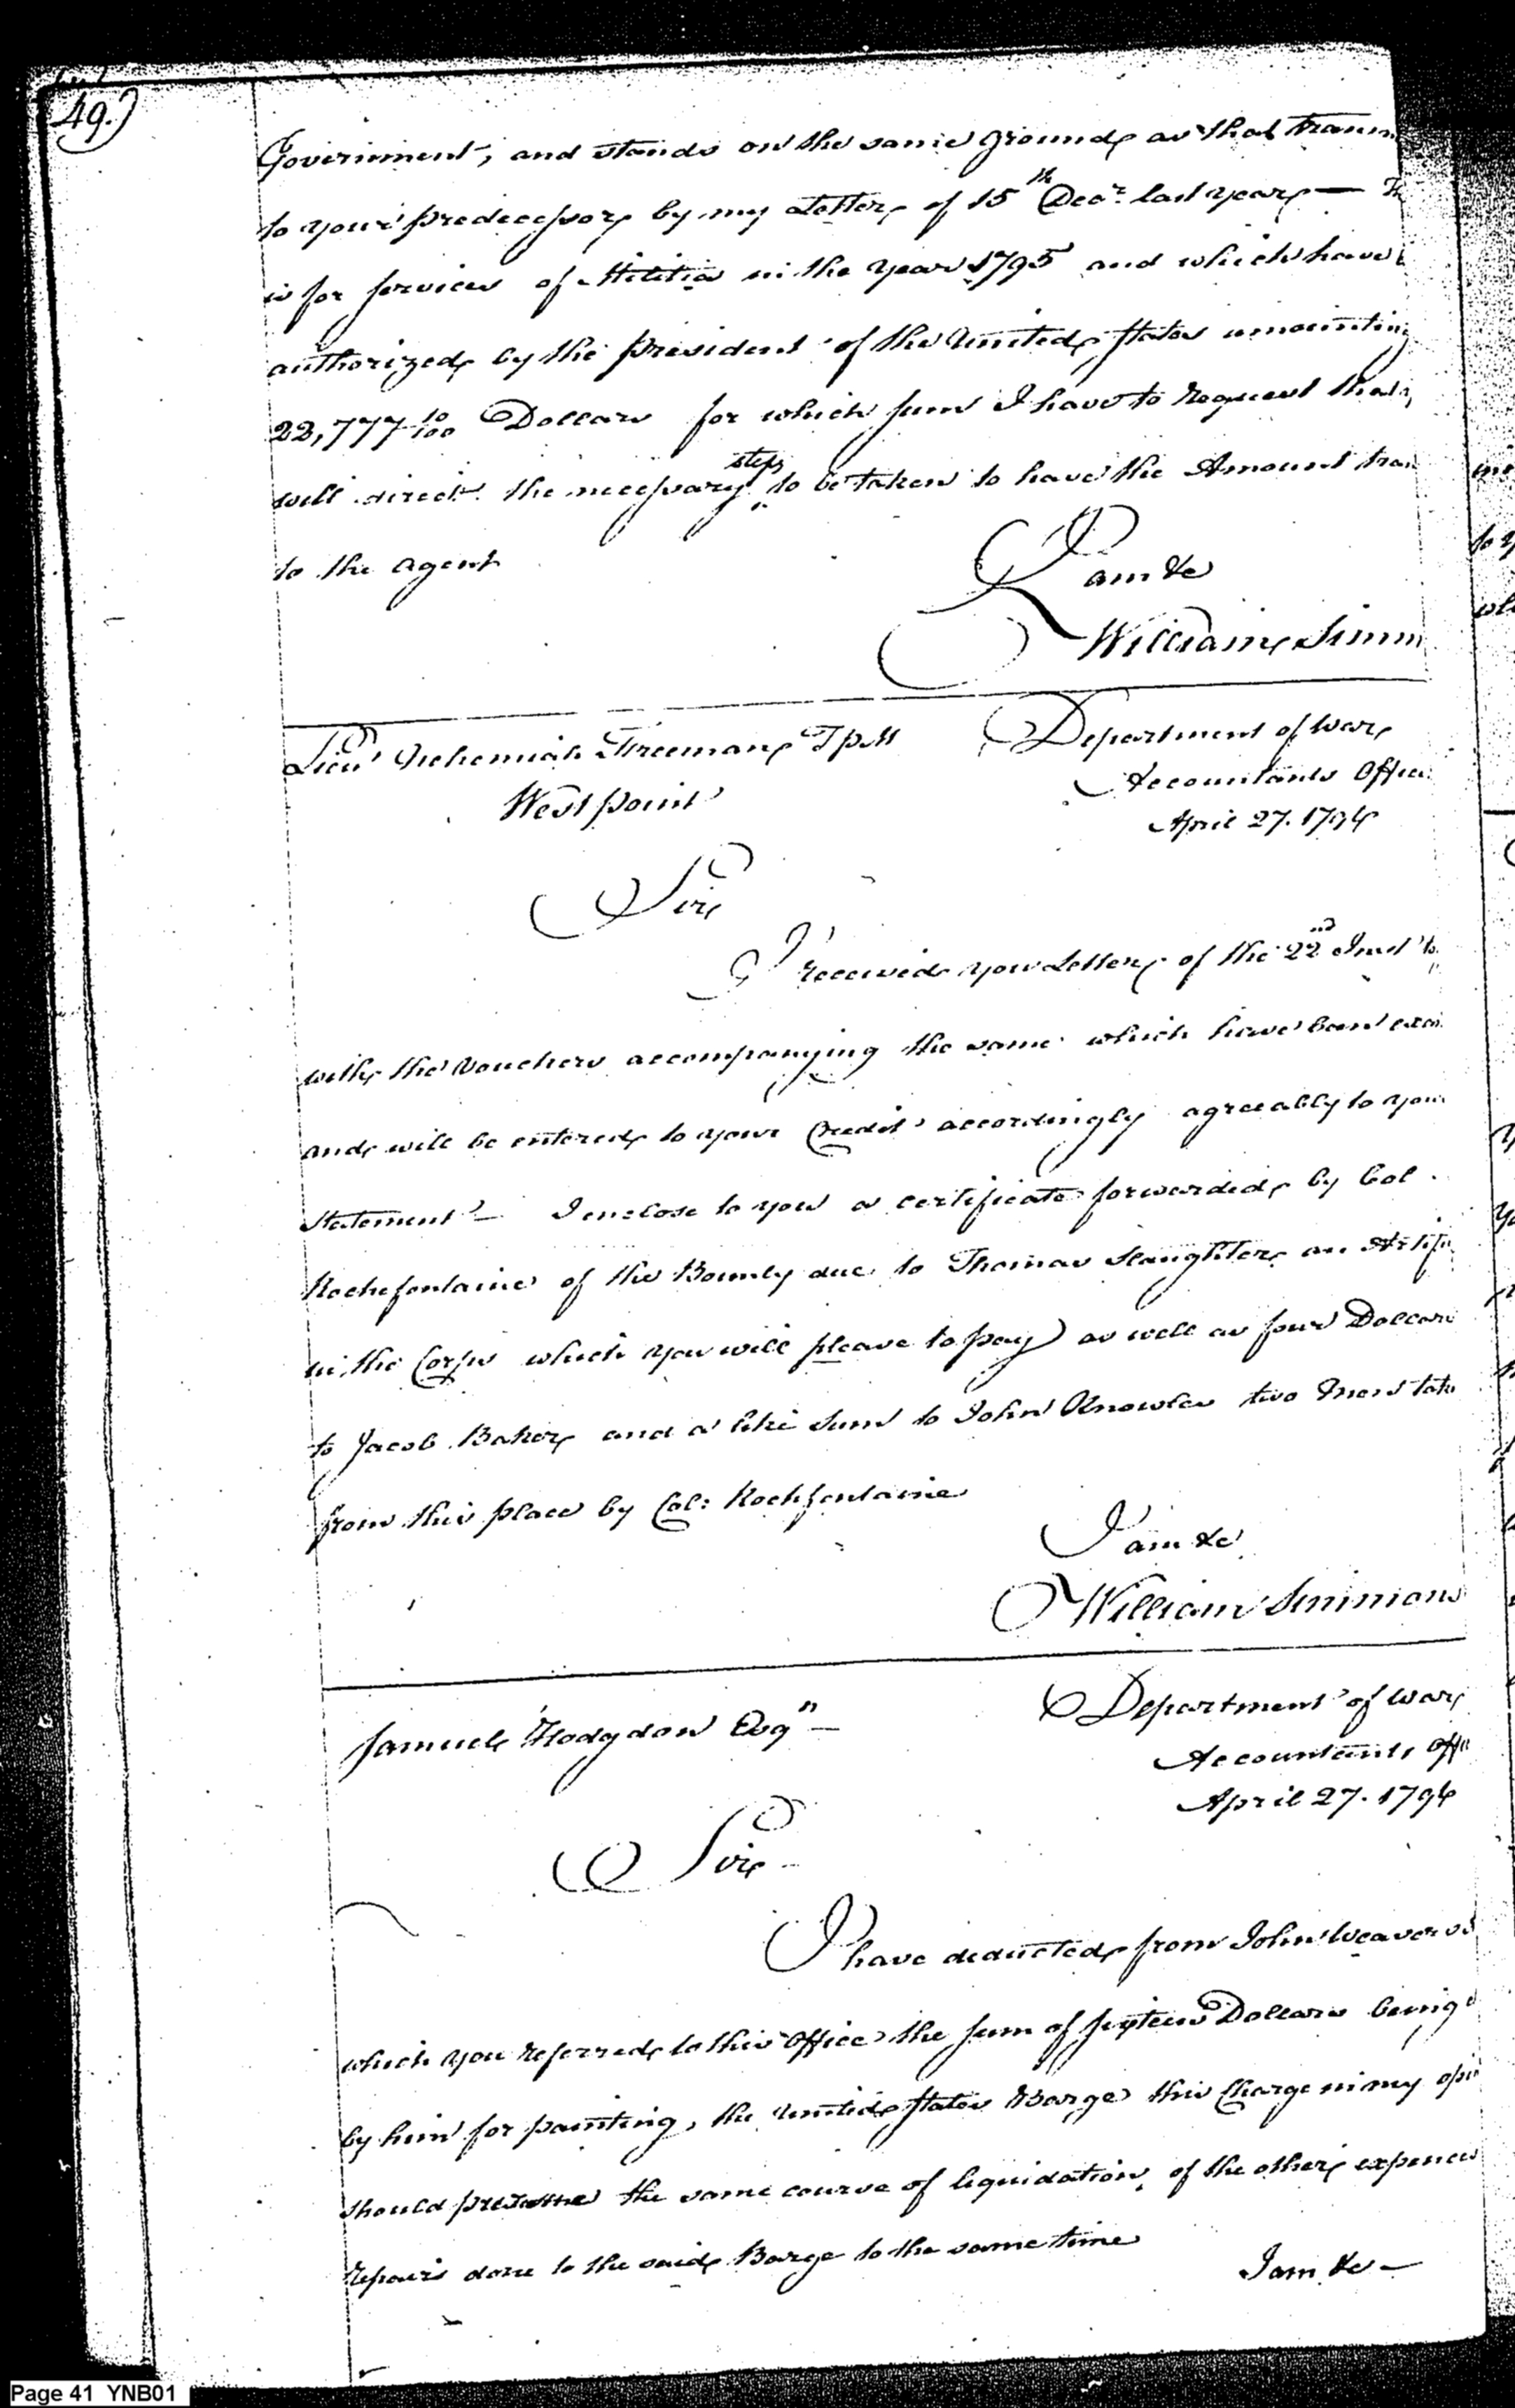 49.)
Government, and stands on the same ground as that
to your predecessor by my Letter of 15th Decr. last year —
is for services of Militia in the year 1795 and which have
authorized by the President of the United States amounting
22,777 10/100 Dollars for which sum I have to request that
will direct the necessary steps to be taken to have the Amount
to the agent
I am &c
William Simm
Lieut Nehemiah Freeman
West point
Department of War
Accountants Office
April 27. 1796
Sir
I received your Letter of the 22nd Inst
with the Vouchers accompanying the same which have been
and will be entered to your Credit accordingly agreeably to your
Statement — I enclose to you a certificate forwarded by Col.
Rochefontaine of the Bounty due to Thomas Slaughter an
in the Corps which you will please to pay as well as four Dollars
to Jacob Baker and a like sum to John Knowles two men
from this place by Col: Rochfontaine
I am &c
William Simmons
Samuel Hodgdon Esqr —
Department of War
Accountants Off
April 27. 1796
Sir
I have deducted from John Weavers
which you referred to this Office the sum of sixteen Dollars being
by him for painting, the United States Barge this Charge in my
should the same course of liquidation, of the other expences
repairs done to the said Barge to the same time
I am &c —
Page 41 YNB01